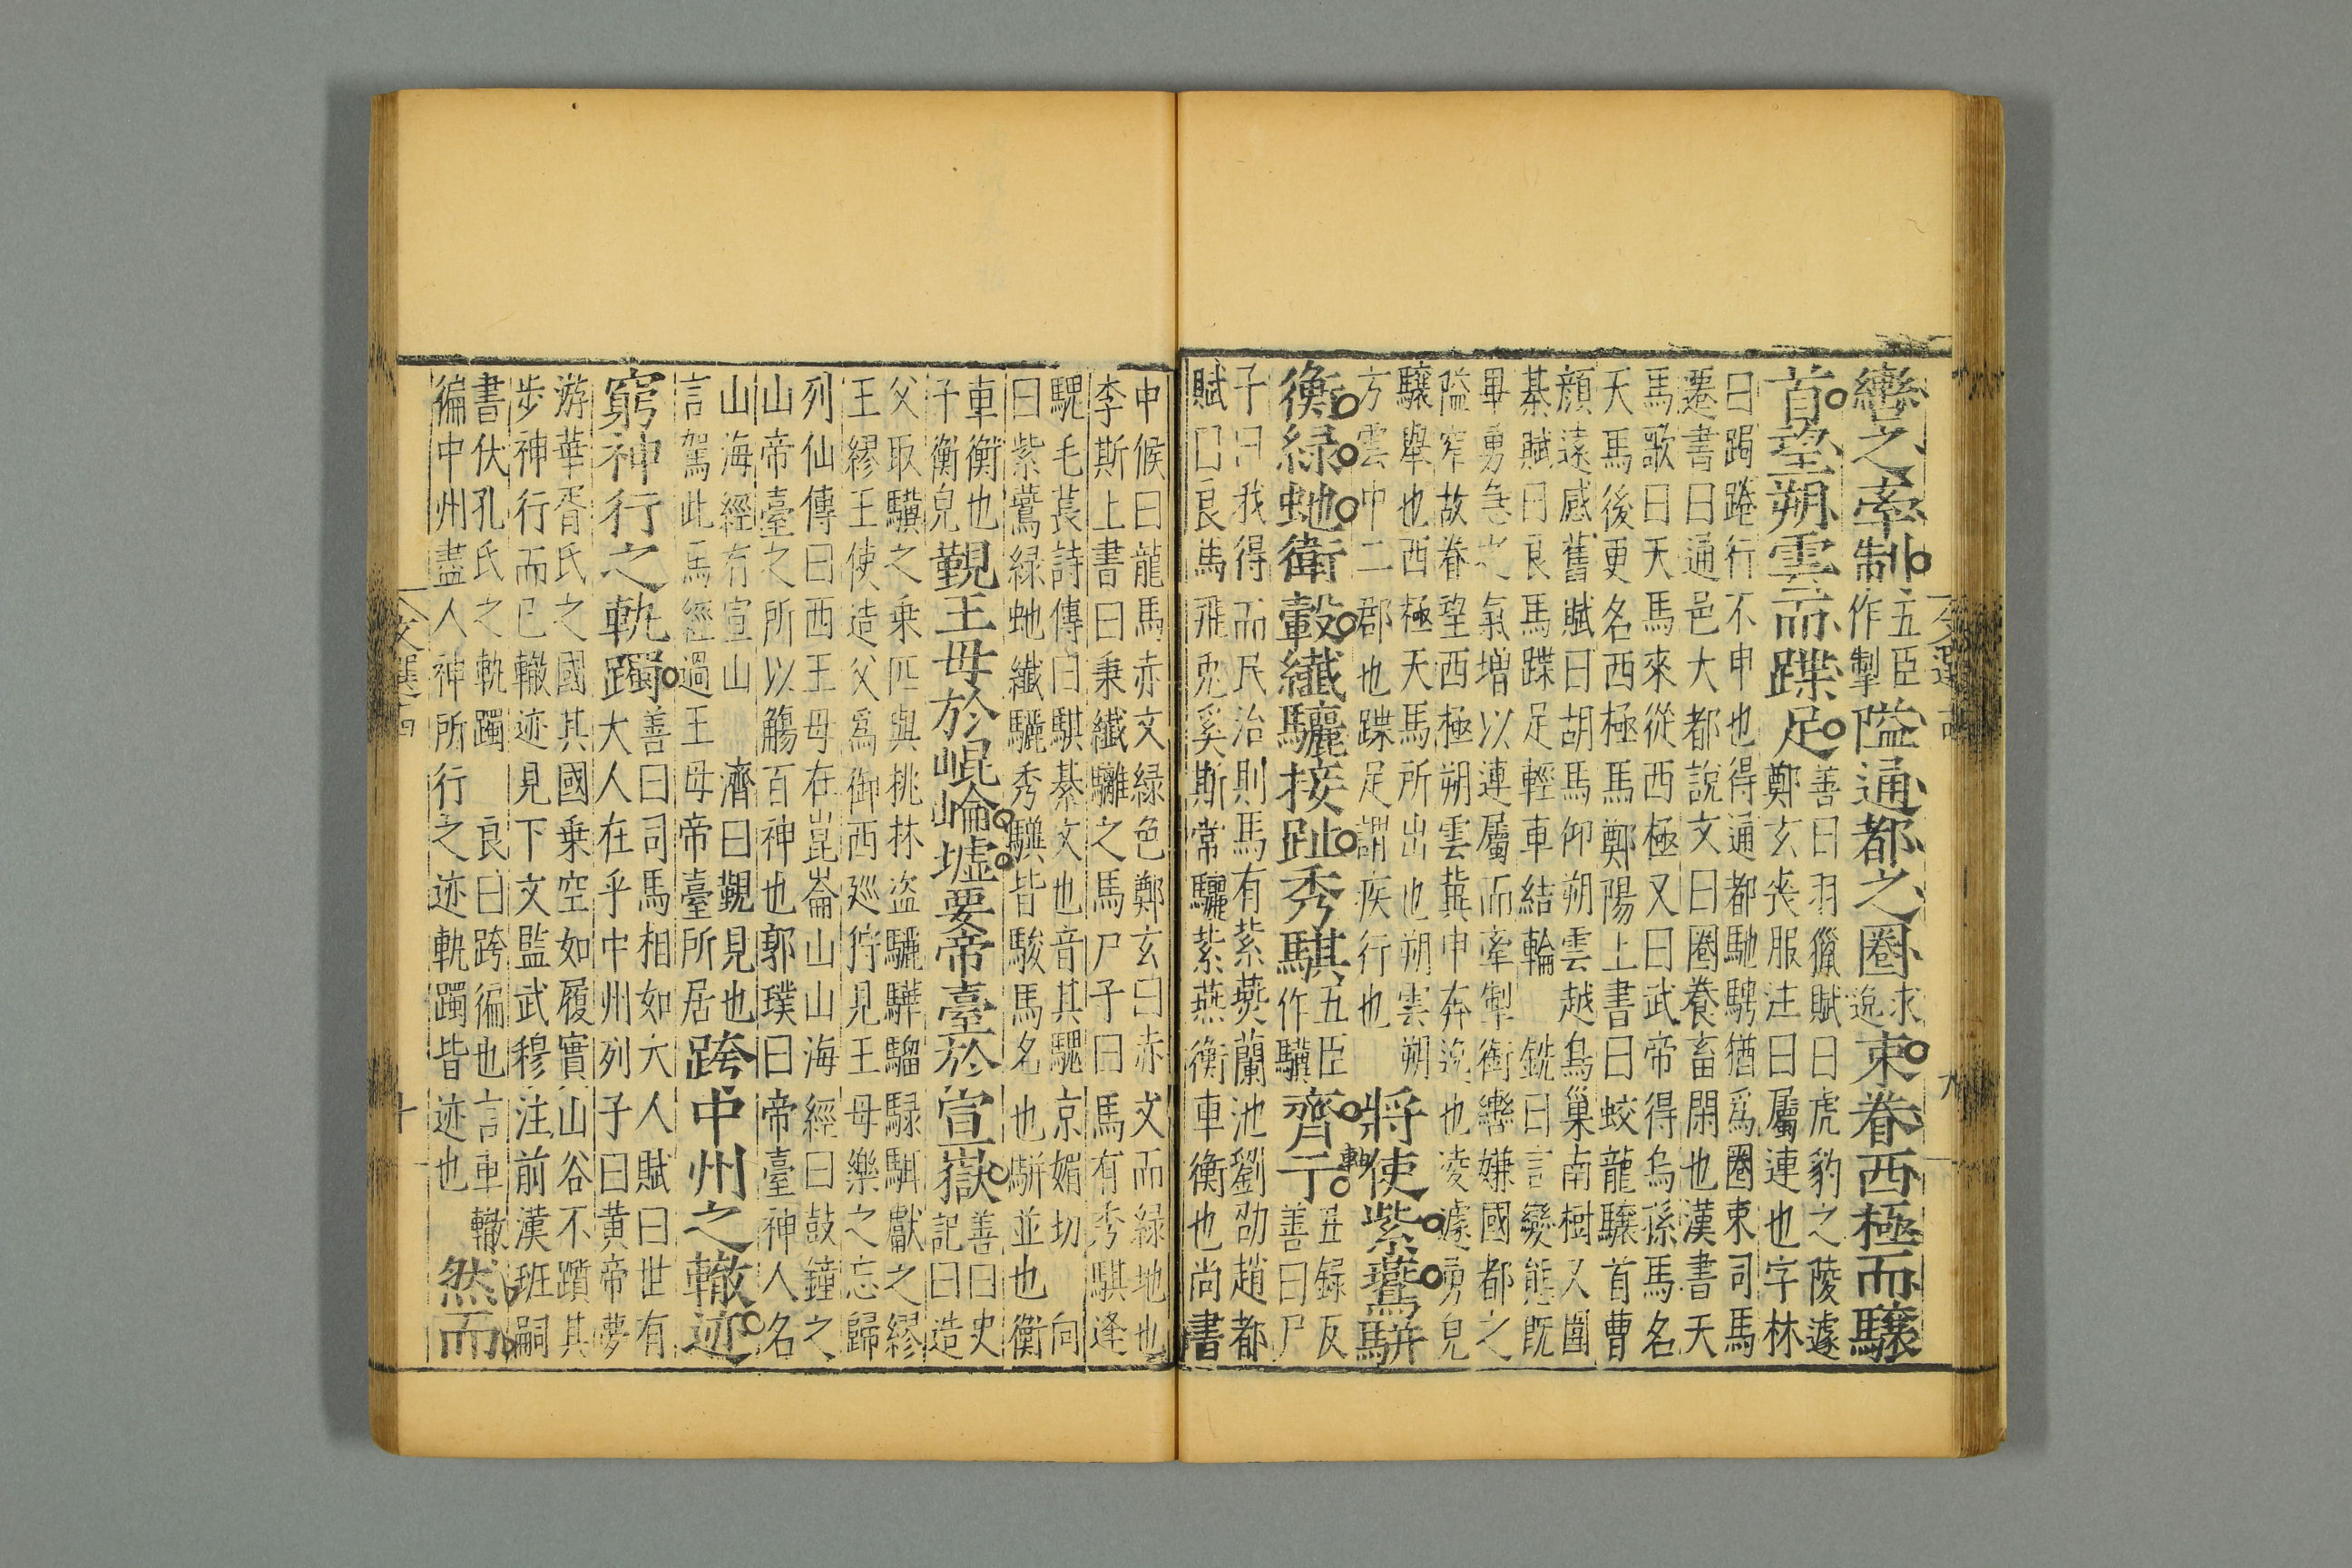 轡之牽制五臣作掣隘通都之圈求逸束眷西極而驤
首望朔雲而蹀足善曰羽獵賦曰虎豹之陵遽
鄭玄喪服注曰屬連也字林
曰跼踡行不申也得通都馳騁猶爲圈束司馬
遷書曰通邑大都說文曰圈養畜閑也漢書天
馬歌曰天馬來從西極又曰武帝得烏孫馬名
天馬後更名西極馬鄭陽上書曰蛟龍驤首曹
顔遠感舊賦曰胡馬仰朔雲越鳥巢南樹又圍
棊賦曰良馬蹀足輕車結輪銑曰言變態旣
畢勇急之氣增以連屬而牽掣銜轡嫌國都之
隘窄故眷望西極朔雲冀申奔逸也凌遽勇皃
驤舉也西極天馬所出也朔雲朔
方雲中二郡也蹀足謂疾行也將使紫鷰駢
衡綠虵衛轂纖驪接趾秀騏五臣作驥齊亍丑録反善曰尸
子曰我得而民治則馬有紫燕蘭池劉劭趙都
賦曰良馬飛兎奚斯常驪紫燕衡車衡也尚書
中候曰龍馬赤文綠色鄭玄曰赤文而綠地也
李斯上書曰乘纖驪之馬尸子曰馬有秀騏逢
騩毛萇詩傳曰騏綦文也音其騩京媚切向
曰紫鷰綠虵纖驪秀驥皆駿馬名也駢並也衡
車衡也
子衡皃覲王毋於崐崘墟要帝臺於宣嶽善曰史
記曰造
父取驥之乗匹與桃林盗驪驊騮騄駬獻之繆
王繆王使造父爲御西廵狩見王母樂之忘歸
列仙傳曰西王母在崑崙山山海經曰鼓鐘之
山帝臺之所以觴百神也郭璞曰帝臺神人名
山海經有宣山濟曰覲見也
言駕此馬經過王毋帝臺所居跨中州之轍迹
窮神行之軌躅善曰司馬相如大人賦曰世有
大人在乎中州列子曰黄帝夢
游華胥氏之國其國乗空如履實山谷不躓其
步神行而已轍迹見下文監武穆注前漢班嗣
書伏孔氏之軌躅良曰跨徧也言車轍
徧中州盡人神所行之迹軌躅皆迹也然而
文選十四
十